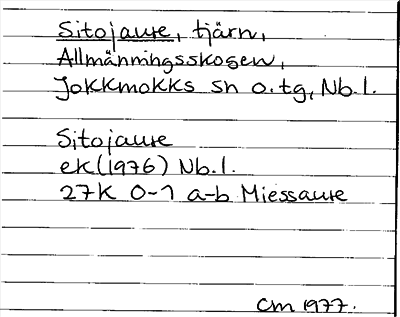 Sitojaure, tjärn,
Allmänningsskogen,
Jokkmokks sn o.tg, Nb.l.
Sitojaure
ek(1976) Nb.l.
27K 0-1 a-b Miessaure
CM 1977.